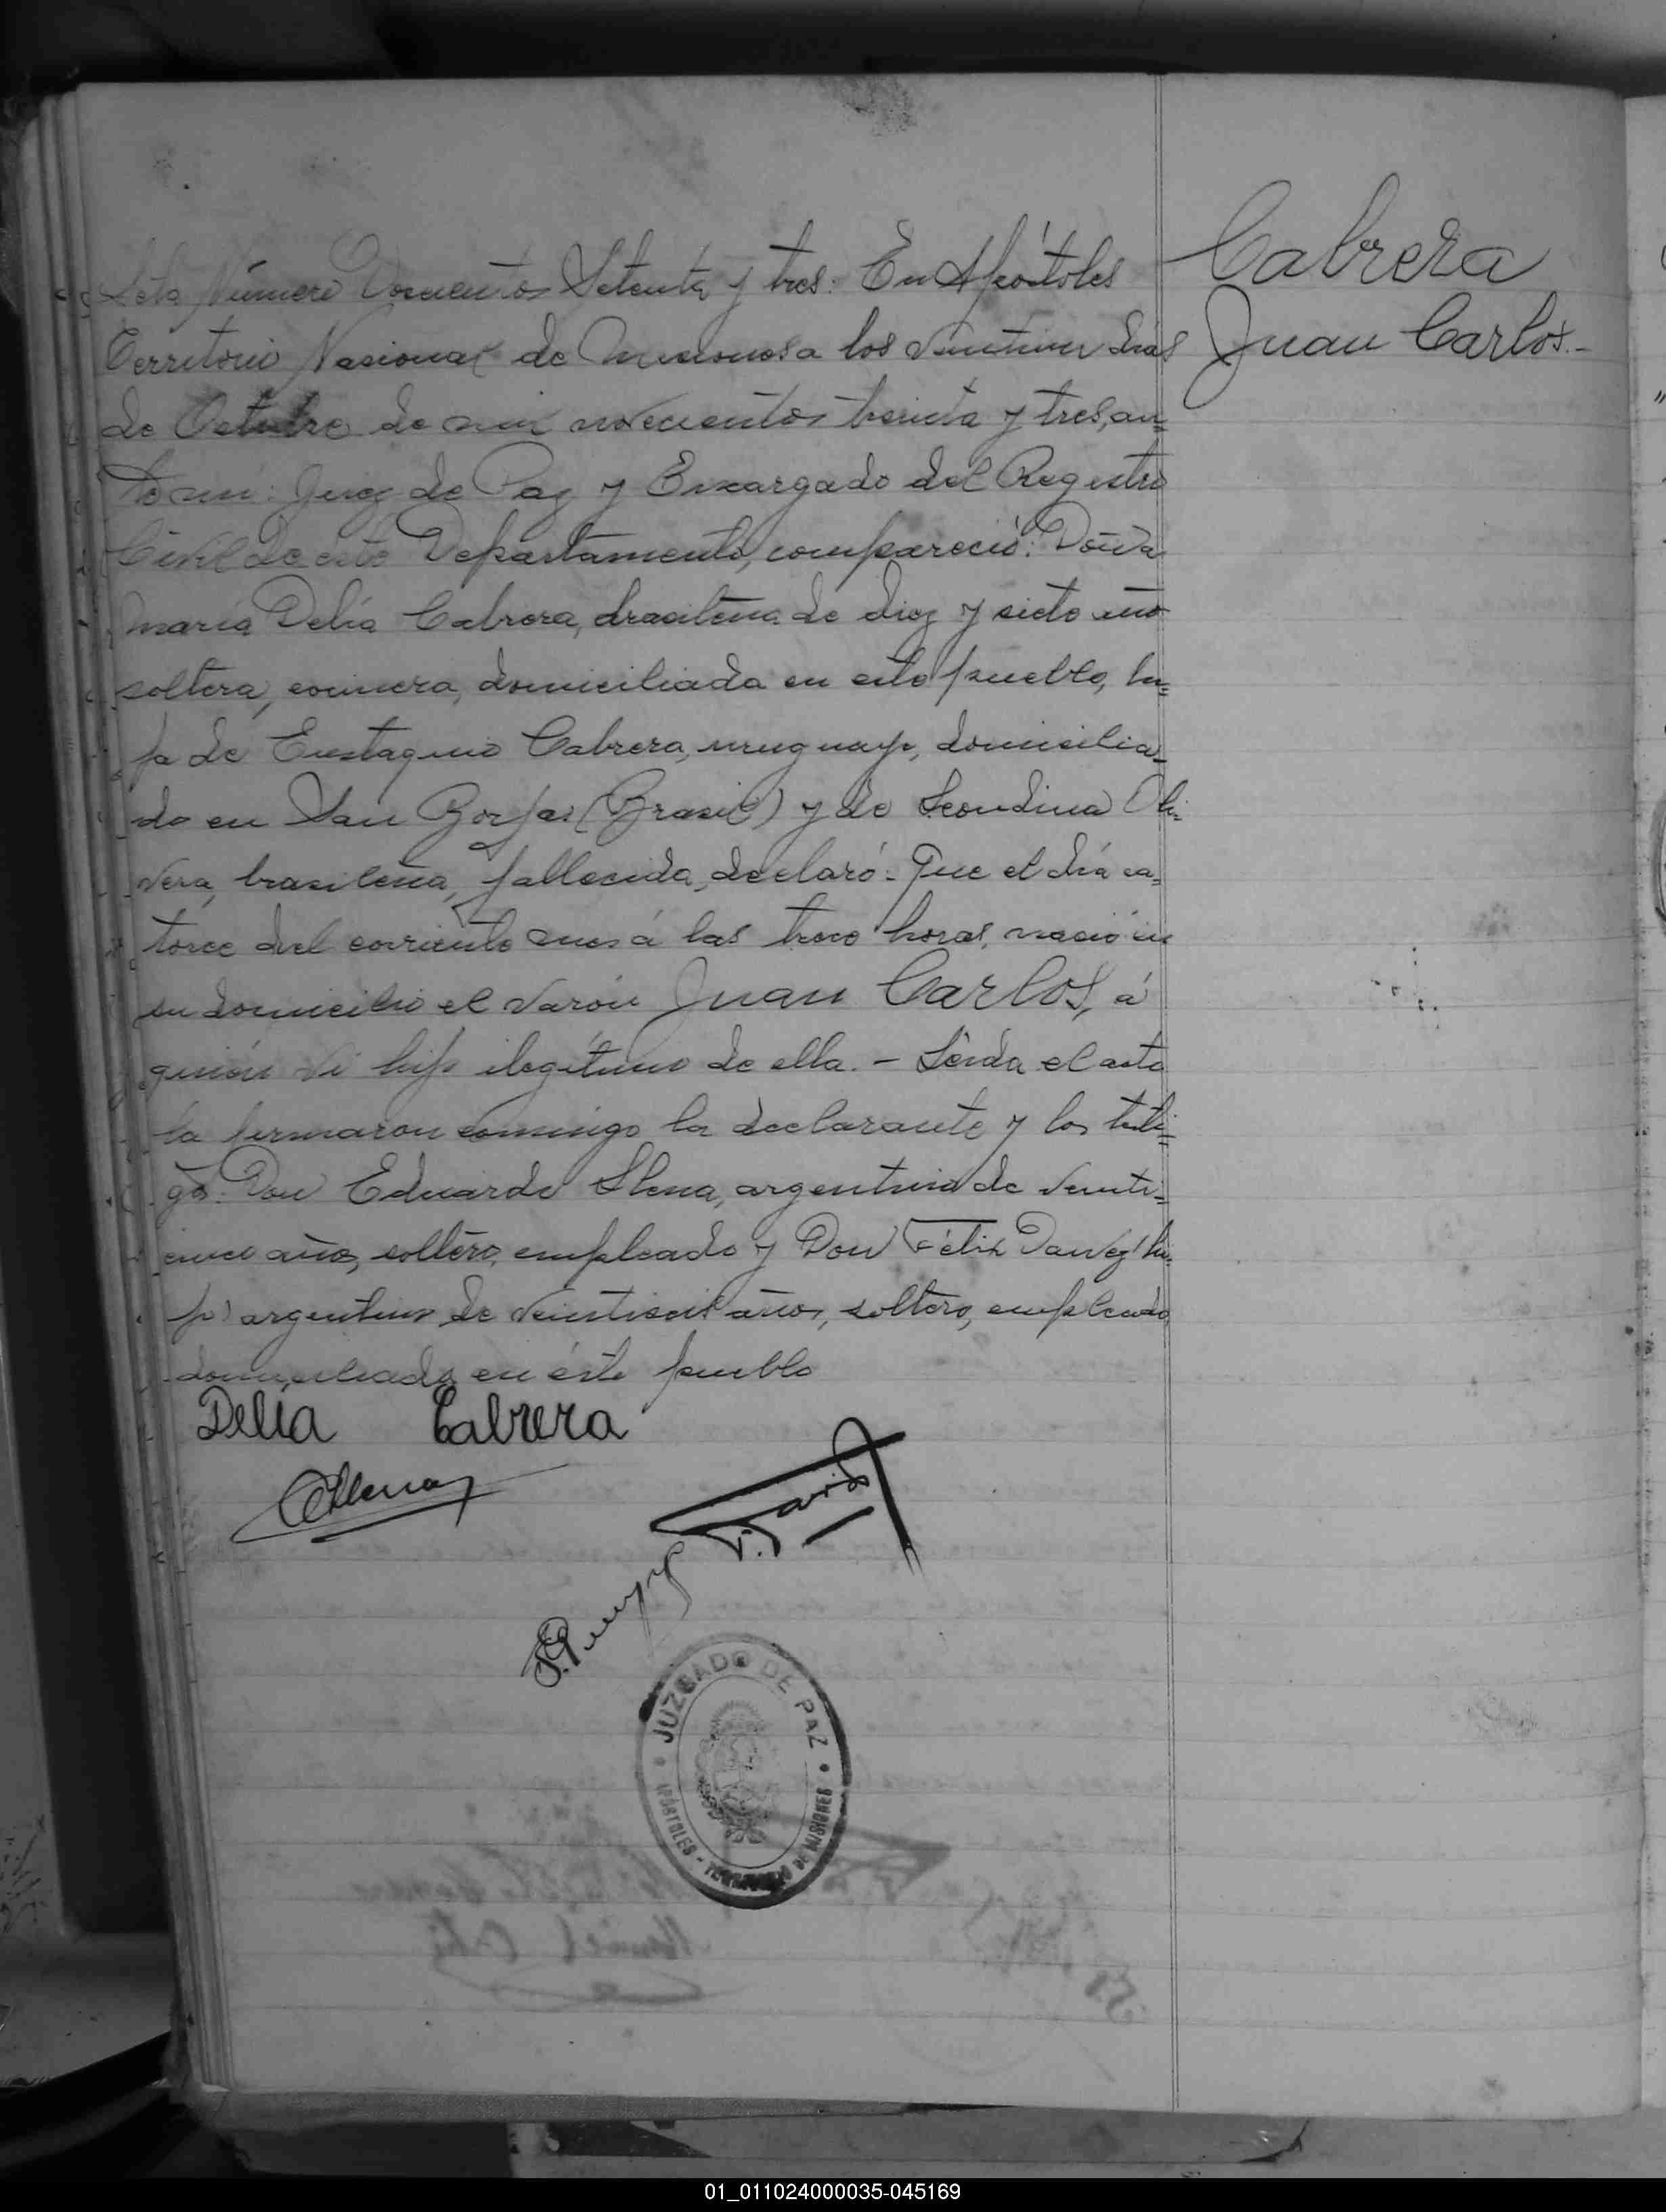 Acta Número Doscientos Setenta y tres: En Apóstoles
Territorio Nacional de Misiones a los días
de Octubre de mil novecientos treinta y tres, an=
te mi: Juez de Paz y Encargado del Registro
Civil de este Departamento, compareció: Doña
María Delia Cabrera, brasilena de diez y siete año
soltera, domiciliada en este pueblo, hi=
ja de Eustaquio Cabrera, uruguayo, domicilia-
do en San Borja (Brasil) y de Leondina Oli-
vera, brasilena, fallecida, declaró: Que el día ca=
torce del corriente mes á las trece horas, nació en
su domicilio el varón Juan Carlos, á
quién vi hijo ilegítimo de ella. - Leída el acta
la firmaron conmigo la declarante y los testi=
gos: Don Eduardo Llena, argentino de veinti=
cinco años, soltero, empleado y Don Félix hi-
jo) argentino de veintiseis años, soltero, empleado,
domiciliado en éste pueblo
Cabrera
Juan Carlos.-
Delia Cabrera
JUZGADO DE PAZ
APÓSTOLES - TERRITORIO DE MISIONES
01_011024000035-045169